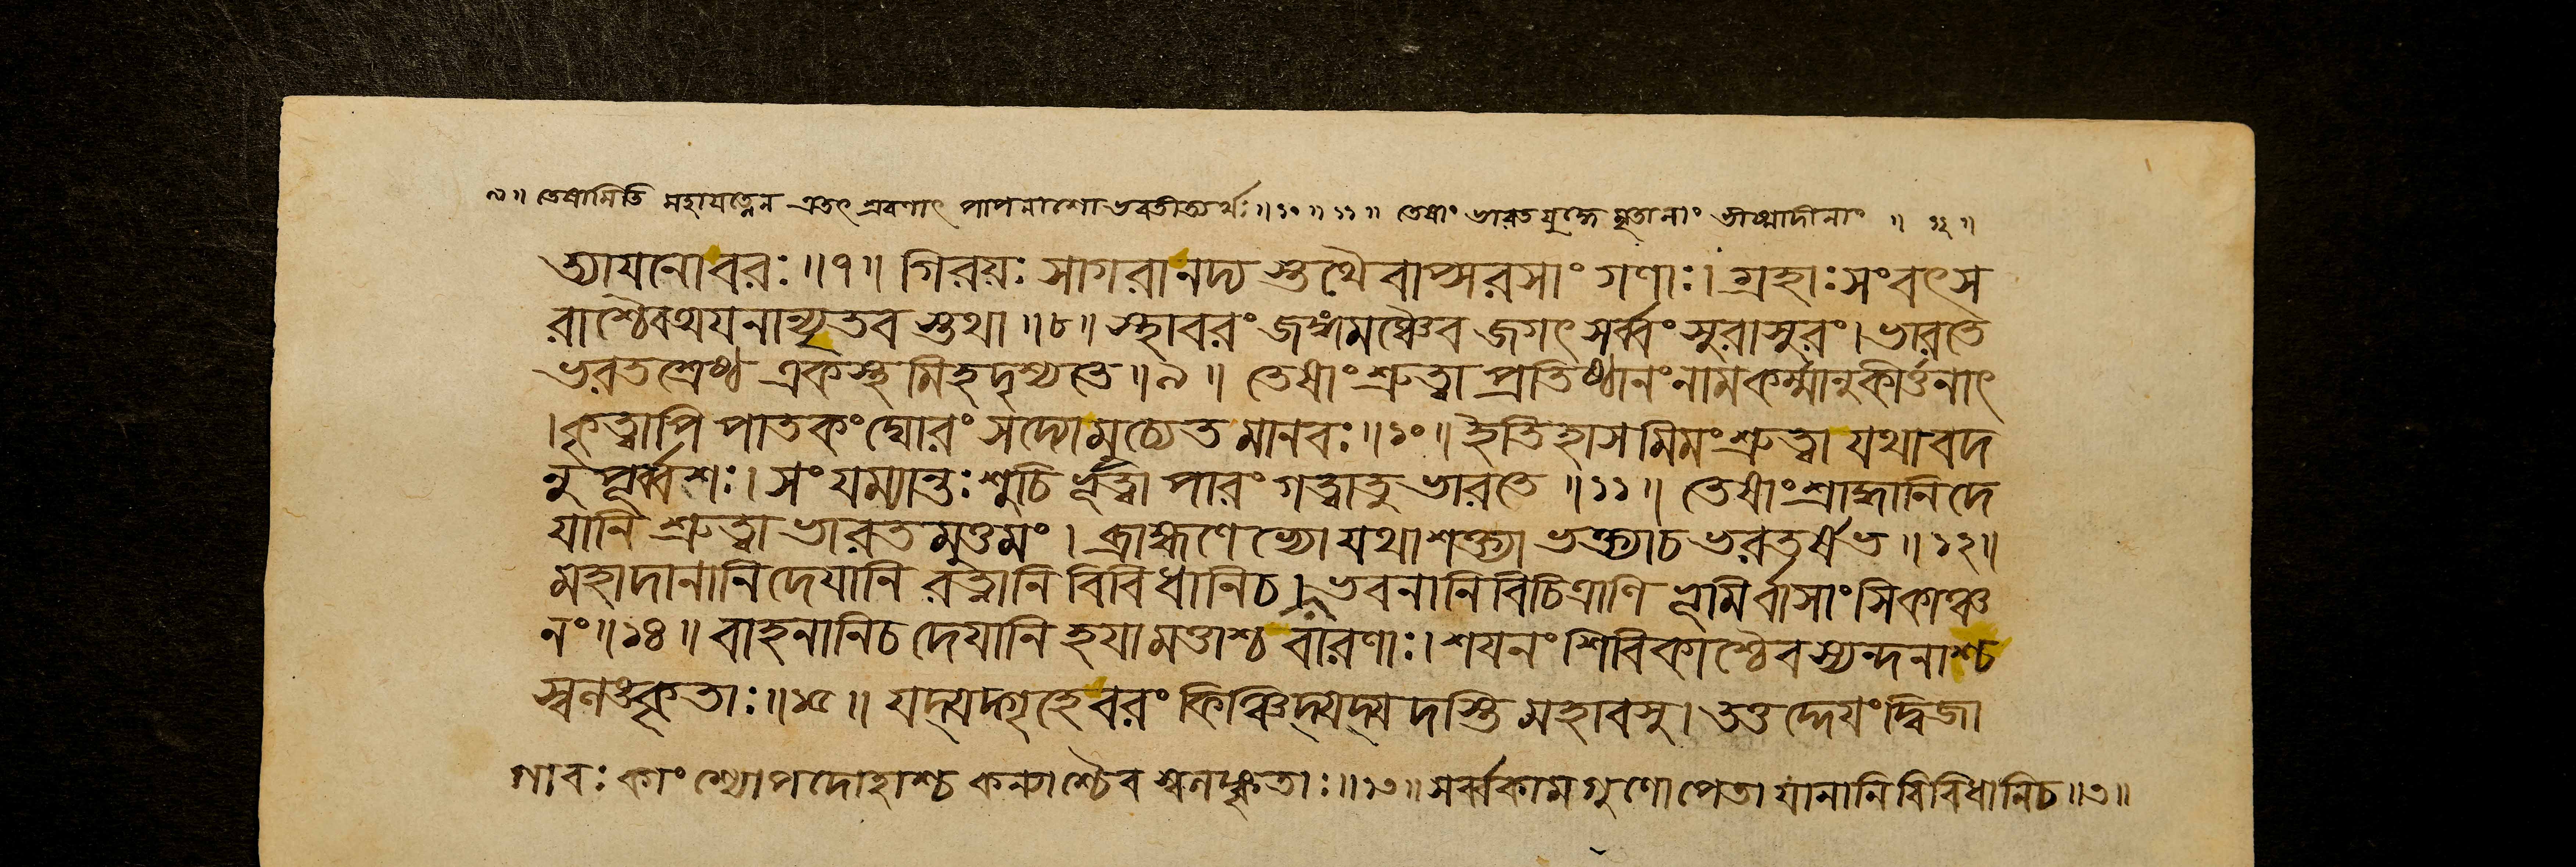 ৯॥ তেষামিতি মহাযত্নেন এতৎ শ্রবণাৎ পাপনাশো ভবতীত্যর্থঃ॥১০॥১১॥ তেষাং ভারতযুদ্ধে মৃতানাং ভীষ্মাদীনাং ॥ ১২॥
ত্যাযনোবরঃ॥৭॥ গিরয়ঃ সাগরানদ্য স্তুথৈবাপ্সরসাং গণাঃ। গ্রহাঃসংবৎস
রাশ্চৈবঅযনান্যৃতব স্তুথা॥৮॥ স্থাবরং জঙ্গমঞ্চৈব জগৎ সর্ব্বং সুরাসুরং। ভারতে
ভরতশ্রেষ্ঠ একস্থ মিহদৃশ্যতে॥৯॥ তেষাং শ্রুত্বা প্রতিষ্ঠানং নামকর্ম্মানুকীর্ত্তনাৎ
।কৃত্বাপি পাতকং ঘোরং সদ্যোমুচ্যেত মানবঃ॥১০॥ ইতিহাস মিমং শ্রুত্বা যথাবদ
নু পূর্ব্বশঃ। সংযম্যান্তঃশুচি র্ভূত্বা পারং গত্বাতু ভারতে॥১১॥ তেষাং শ্রাদ্ধানিদে
যানি শ্রুত্বা ভারত মুত্তমং। ব্রাহ্মণেভ্যো যথাশক্ত্যা ভক্ত্যাচ ভরতর্ষভ॥১২॥
মহাদানানিদেযানি রত্নানি বিবিধানিচ। ভবনানিবিচিত্রাণি ভূমির্বাসাংসিকাঞ্চ
নং॥১৪॥ বাহনানিচ দেযানি হযামত্তাশ্চ বারণাঃ। শযনং শিবিকাশ্চৈবস্যন্দনাশ্চ
স্বলঙ্কৃতাঃ॥১৫॥ যদ্যদ্গৃহেবরং কিঞ্চিদ্যদ্যদস্তি মহাবসু। তত্তদ্দেযং দ্বিজা
গাবঃ কাংশ্যোপদোহাশ্চ কন্যাশ্চৈব স্বলঙ্কৃতাঃ॥১৩॥ সর্ব্বকাম গুণোপেতা যানানি বিবিধানিচ॥৩॥